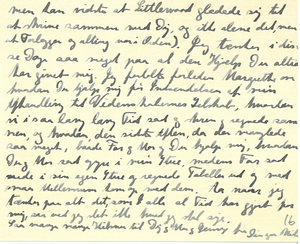 men han vidste at Littlewood glædede sig til
at skrive sammen med Dig, og ikke alene det, men
at Forlægger og alting var i Orden). Jeg tænker i disse
Dage saa meget paa al den Hjælp Du altid
har givet mig. Jeg fortalte forleden Margrethe om
hvordan Du hjalp mig paa Indsendelsen af min
Afhandling til Videnskabernes Selskab, hvordan
vi i saa lang lang Tid sad og skrev og regnede sammen
men, og hvordan den sidste Aften, da der manglede
saa meget, baade Far & Mor & Du hjalp mig, hvordan
Du & Mor sad oppe i min Stue, medens Far sad
nede i sin egen Stue og regnede Tabeller ud og ned
mor Mellemrum kom op med dem. Aa naar jeg
tænker paa alt det, som I alle al Tid har gjort for
mig, saa ved jeg slet ikke hvad jeg skal sige.
Saa mange mange Hilsner til Dig & Mor & Jenny fra Din egen Niels
16